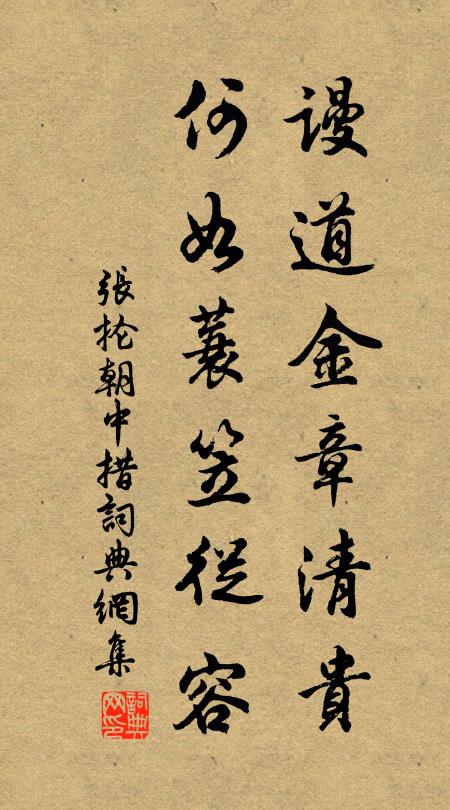 谩道金章清貴
何如蓑笠從容
張抡朝中措詞典網集
詞典网印